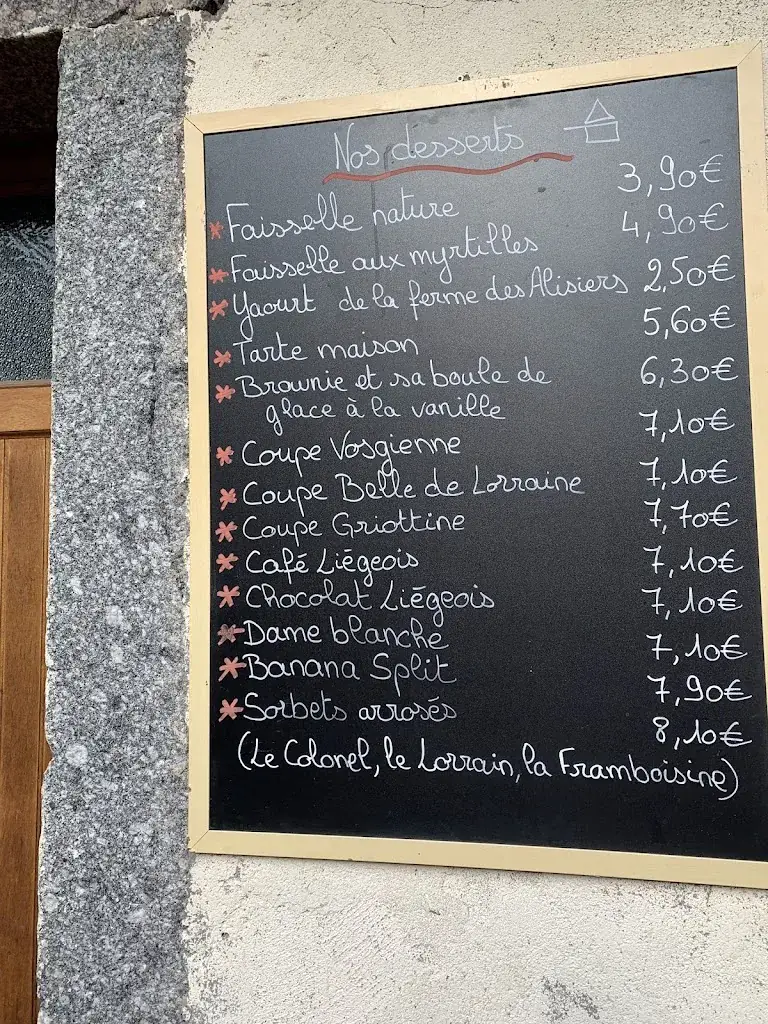 Nos desserts
* Faisselle nature 3,90€
* Faisselle aux myrtilles 4,90€
* Yaourt de la ferme des Alisiers 2,50€
* Tarte maison 5,60€
* Brownie et sa boule de
glace à la vanille 6,30€
* Coupe Vosgienne 7,10€
* Coupe Belle de Lorraine 7,10€
* Coupe Griottine 7,70€
* Café Liégeois 7,10€
* Chocolat Liégeois 7,10€
* Dame blanche 7,10€
* Banana Split 7,90€
* Sorbets arrosés 8,10€
(Le Colonel, le Lorrain, la Framboisine)